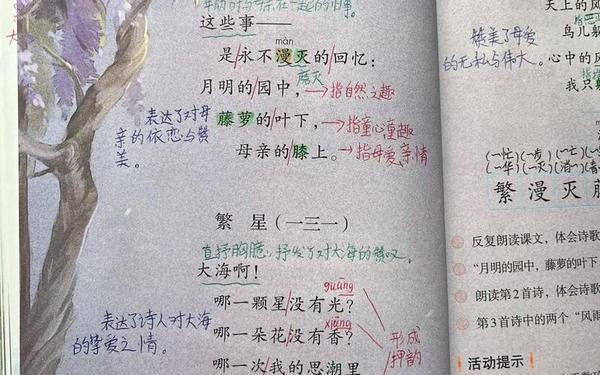 这些事——
màn
是/永不/漫灭的/回忆：
磨灭
月明的/园中，→指自然之趣
藤萝的/叶下，→指童心童趣
母亲的/膝上。→指母爱亲情
表达了对母
亲的依恋与赞
美。
繁 星（一三一）
直抒胸臆，抒发了对大海的赞叹
大海啊！
guāng
哪一颗星/没有光？
xiāng
哪一朵花/没有香？
哪一次/我的思潮里
形成
押韵
表达了诗人对大海
的挚爱之情。
天上的风
鸟儿躲
赞美了母爱
的无私与伟大。
心中的风
我只
(一忙)(一步)
(一华)(一灭)(消一)
繁 漫 灭
反复朗读课文，体会诗歌
“月明的园中，藤萝的叶下
朗读第2首诗，体会诗歌
第3首诗中的两个“风雨
活动提示